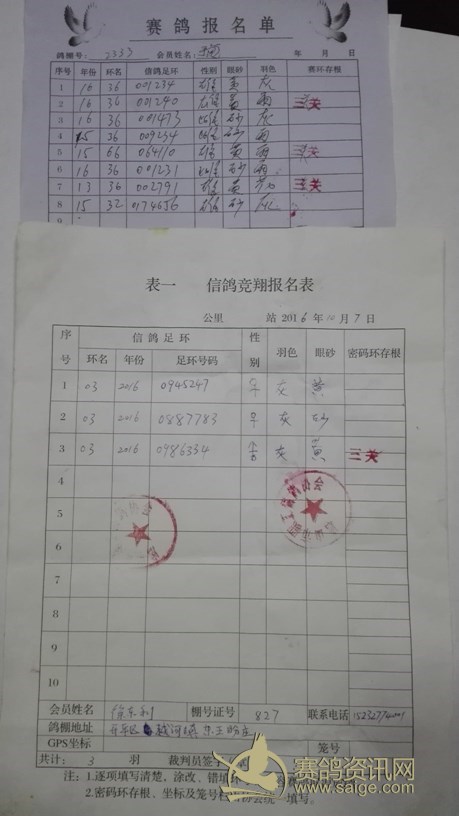 赛鸽报名单
鸽棚号: 2337 会员姓名: 年 月 日
序号 年份 环名 信鸽足环 性别 眼砂 羽色 赛环存根
1 16 36 001234 雄 黄 灰
2 16 36 001240 雄 黄 雨 三关
3 16 36 001473 雌 砂 灰
4 15 36 009234 雌 砂 雨
5 15 66 064110 雄 黄 雨 三关
6 16 36 001231 雌 砂 雨
7 13 36 002791 雄 黄 三关
8 15 32 0174656 雄 砂 灰
9
表一 信鸽竞翔报名表
公里 站 2016 年 10 月 7 日
序号 信鸽足环 性别 羽色 眼砂 密码环存根
环名 年份 足环号码
1 03 2016 0945247 ♀ 灰 黄
2 03 2016 0887783 ♀ 灰 砂
3 03 2016 0986354 灰 黄 三关
4
5
6
7
8
9
10
会员姓名 徐东利 棚号证号 827 联系电话
鸽棚地址 开平区 越河镇
GPS坐标 笼号
共计: 3 羽 裁判员签
注: 1.逐项填写清楚、涂改、错填
2.密码环存根、坐标及笼号 填写。
赛鸽资讯网
www.saige.com